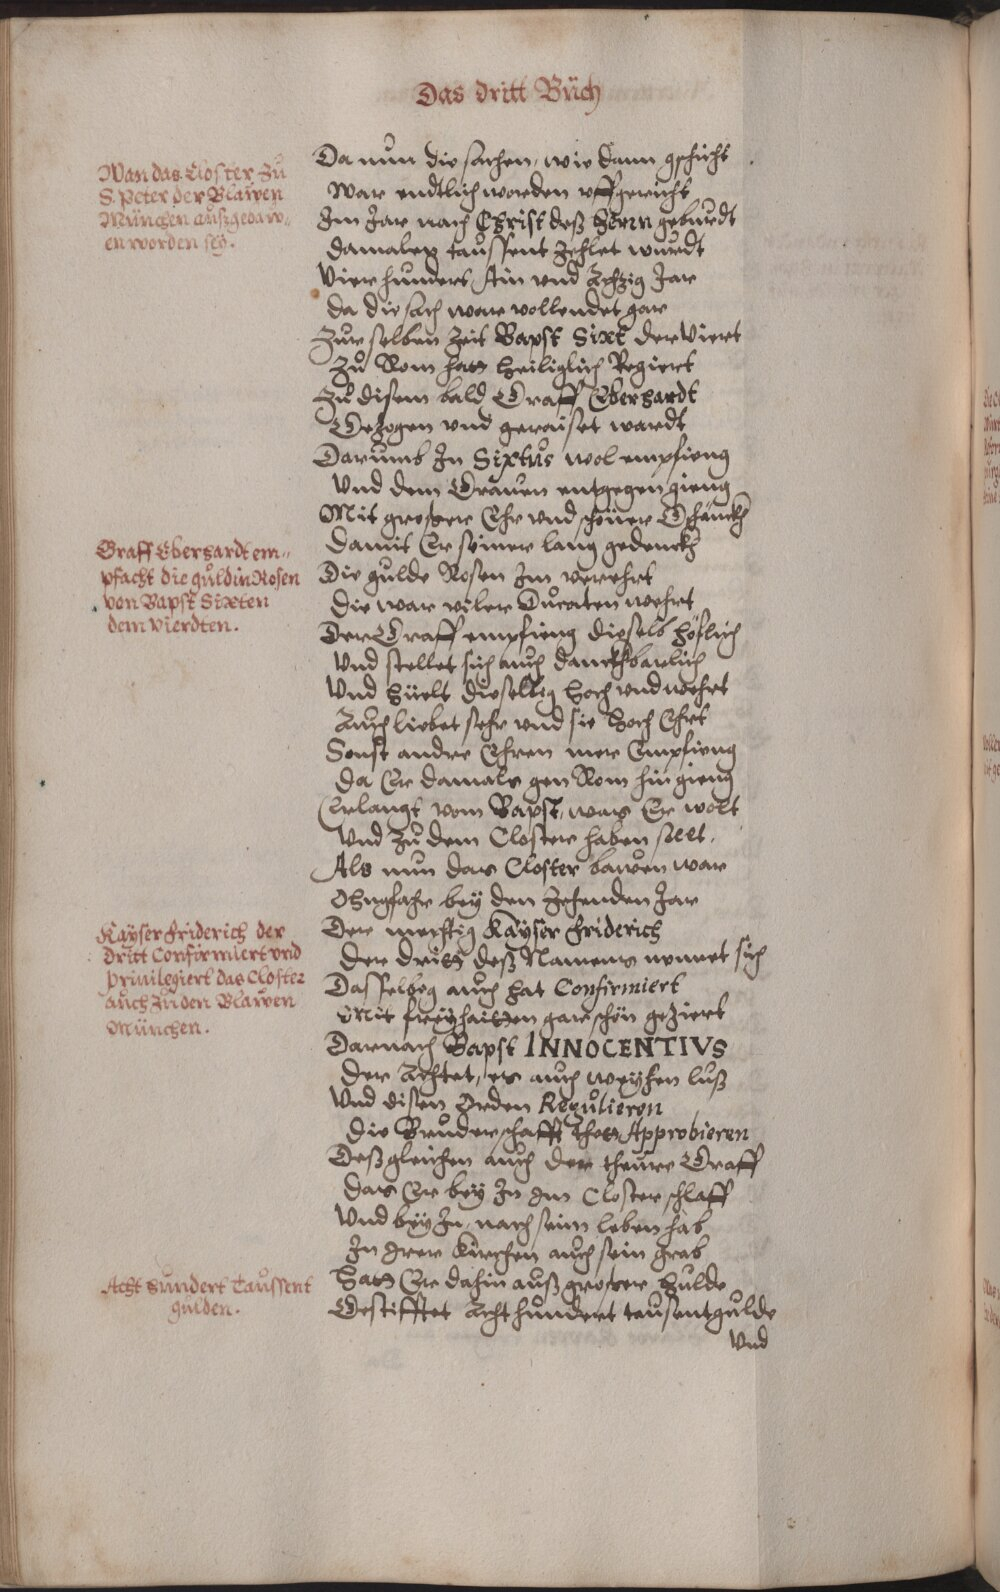 Das dritt Bůch
Wan das Closter zů
S. Peter der Blawen
München aufgebaw-
en worden sey.
Da nun die sachen, wie dann gschicht
War endtlich worden vffgericht
Im Jar nach Christ deß Herrn geburdt
damalen taussent zehlet wurdt
Vierhundert Ain vnd Achzig Jar
da die sach war vollendet gar
Zur selben Zeit Bapst Sixt der Viert
Zů Rom hatt heiliglich Regiert
Zů disem bald Graff Eberhardt
Gezogen vnd geraiset wardt
Darumb In Sixtus wol empfieng
Vnd dem Grauen entgegen gieng
Mit grosser Ehr vnd schöner Gschänckh
damit Er seiner lang gedenckh
Graff Eberhardt em-
pfacht die guldin Rosen
von Bapst Sixten
dem vierdten.
Die gulde Rosen Im verehrt
die war viler Ducaten wehrt
Der Graff empfieng dieselb höflich
Vnd stellet sich auch danckhbarlich
Vnd hüelt dieselbig hoch vnd wehrt
Auch liebet sehr vnd sie hoch Ehrt
Sonst andre Ehren mer Empfieng
da Er damals gen Rom hin gieng
Erlangt vom Bapst, was Er wolt
Vnd zů dem Closter haben solt.
Als nun das Closter bawen war
Ohngfahr bey den zehenden Jar
Kayser friderich der
dritt Confirmiert vnd
priuilegiert das Closter
auch zu den Blawen
München.
Der mechtig Kayser friderich
der dritt deß Namens nennet sich
Dasselbig auch hat Confirmiert
Mit freyhaitten gar schön geziert
Darnach Bapst INNOCENTIVS
der Achtet, es auch weyhen luß
Vnd disen Orden Regulieren
die Bruderschafft thett Approbieren
Deßgleichen auch der theure Graff
das Er bey In im Closter schlaff
Vnd bey In, nach seim leben hab
In irer Kürchen auch sein grab
Acht hundert Taussent
gulden.
Hatt Er dahin auß grosser hulde
Gestifftet Acht hundert tausent gulde
Vnd